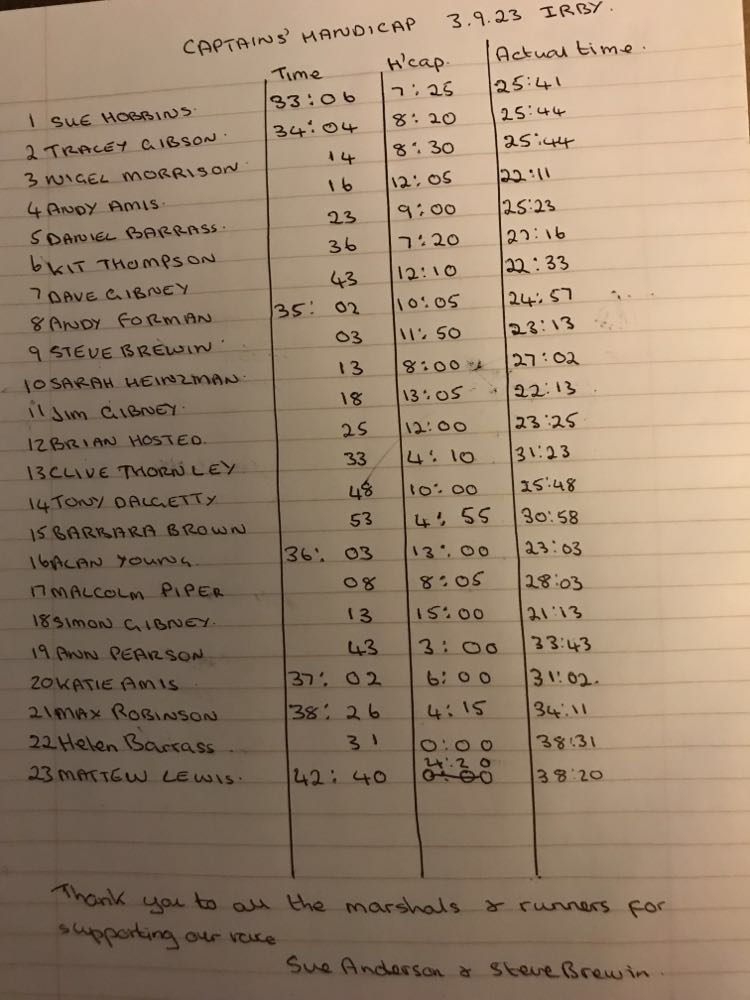 CAPTAINS' HANDICAP 3.9.23 IRBY.
Time H'cap. Actual time.
1 SUE HOBBINS. 33:06 7:25 25:41
2 TRACEY GIBSON. 34:04 8:20 25:44
3 NIGEL MORRISON 14 8:30 25:44
4 ANDY AMIS. 16 12:05 22:11
5 DANIEL BARRASS. 23 9:00 25:23
6 KIT THOMPSON 36 7:20 27:16
7 DAVE GIBNEY 43 12:10 22:33
8 ANDY FORMAN 35:02 10:05 24:57
9 STEVE BREWIN 03 11:50 23:13
10 SARAH HEINZMAN. 13 8:00 27:02
11 JIM GIBNEY. 18 13:05 22:13
12 BRIAN HOSTED. 25 12:00 23:25
13 CLIVE THORNLEY 33 4:10 31:23
14 TONY DALGETTY 48 10:00 25:48
15 BARBARA BROWN 53 4:55 30:58
16 ALAN YOUNG 36:03 13:00 23:03
17 MALCOLM PIPER 08 8:05 28:03
18 SIMON GIBNEY. 13 15:00 21:13
19 ANN PEARSON 43 3:00 33:43
20 KATIE AMIS 37:02 6:00 31:02.
21 MAX ROBINSON 38:26 4:15 34:11
22 Helen Barrass. 31 0:00 38:31
23 MATTEW LEWIS. 42:40 4:20 0:00 38:20
Thank you to all the marshals & runners for
supporting our race
Sue Anderson & Steve Brewin.